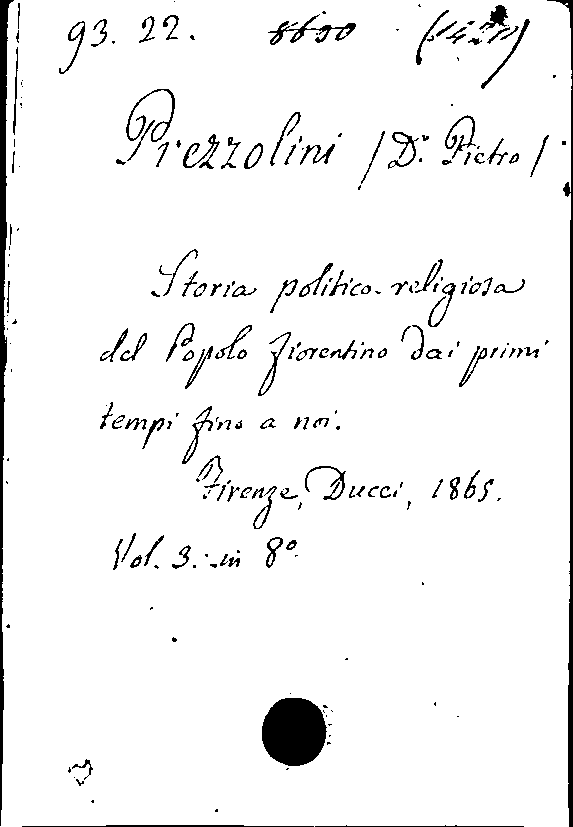 93. 22. 8600
Prezzolini / Dr. Pietro /
Storia politico-religiosa
del Popolo fiorentino dai primi
tempi fino a noi.
Firenze, Ducci, 1865.
Vol. 3. in 8º